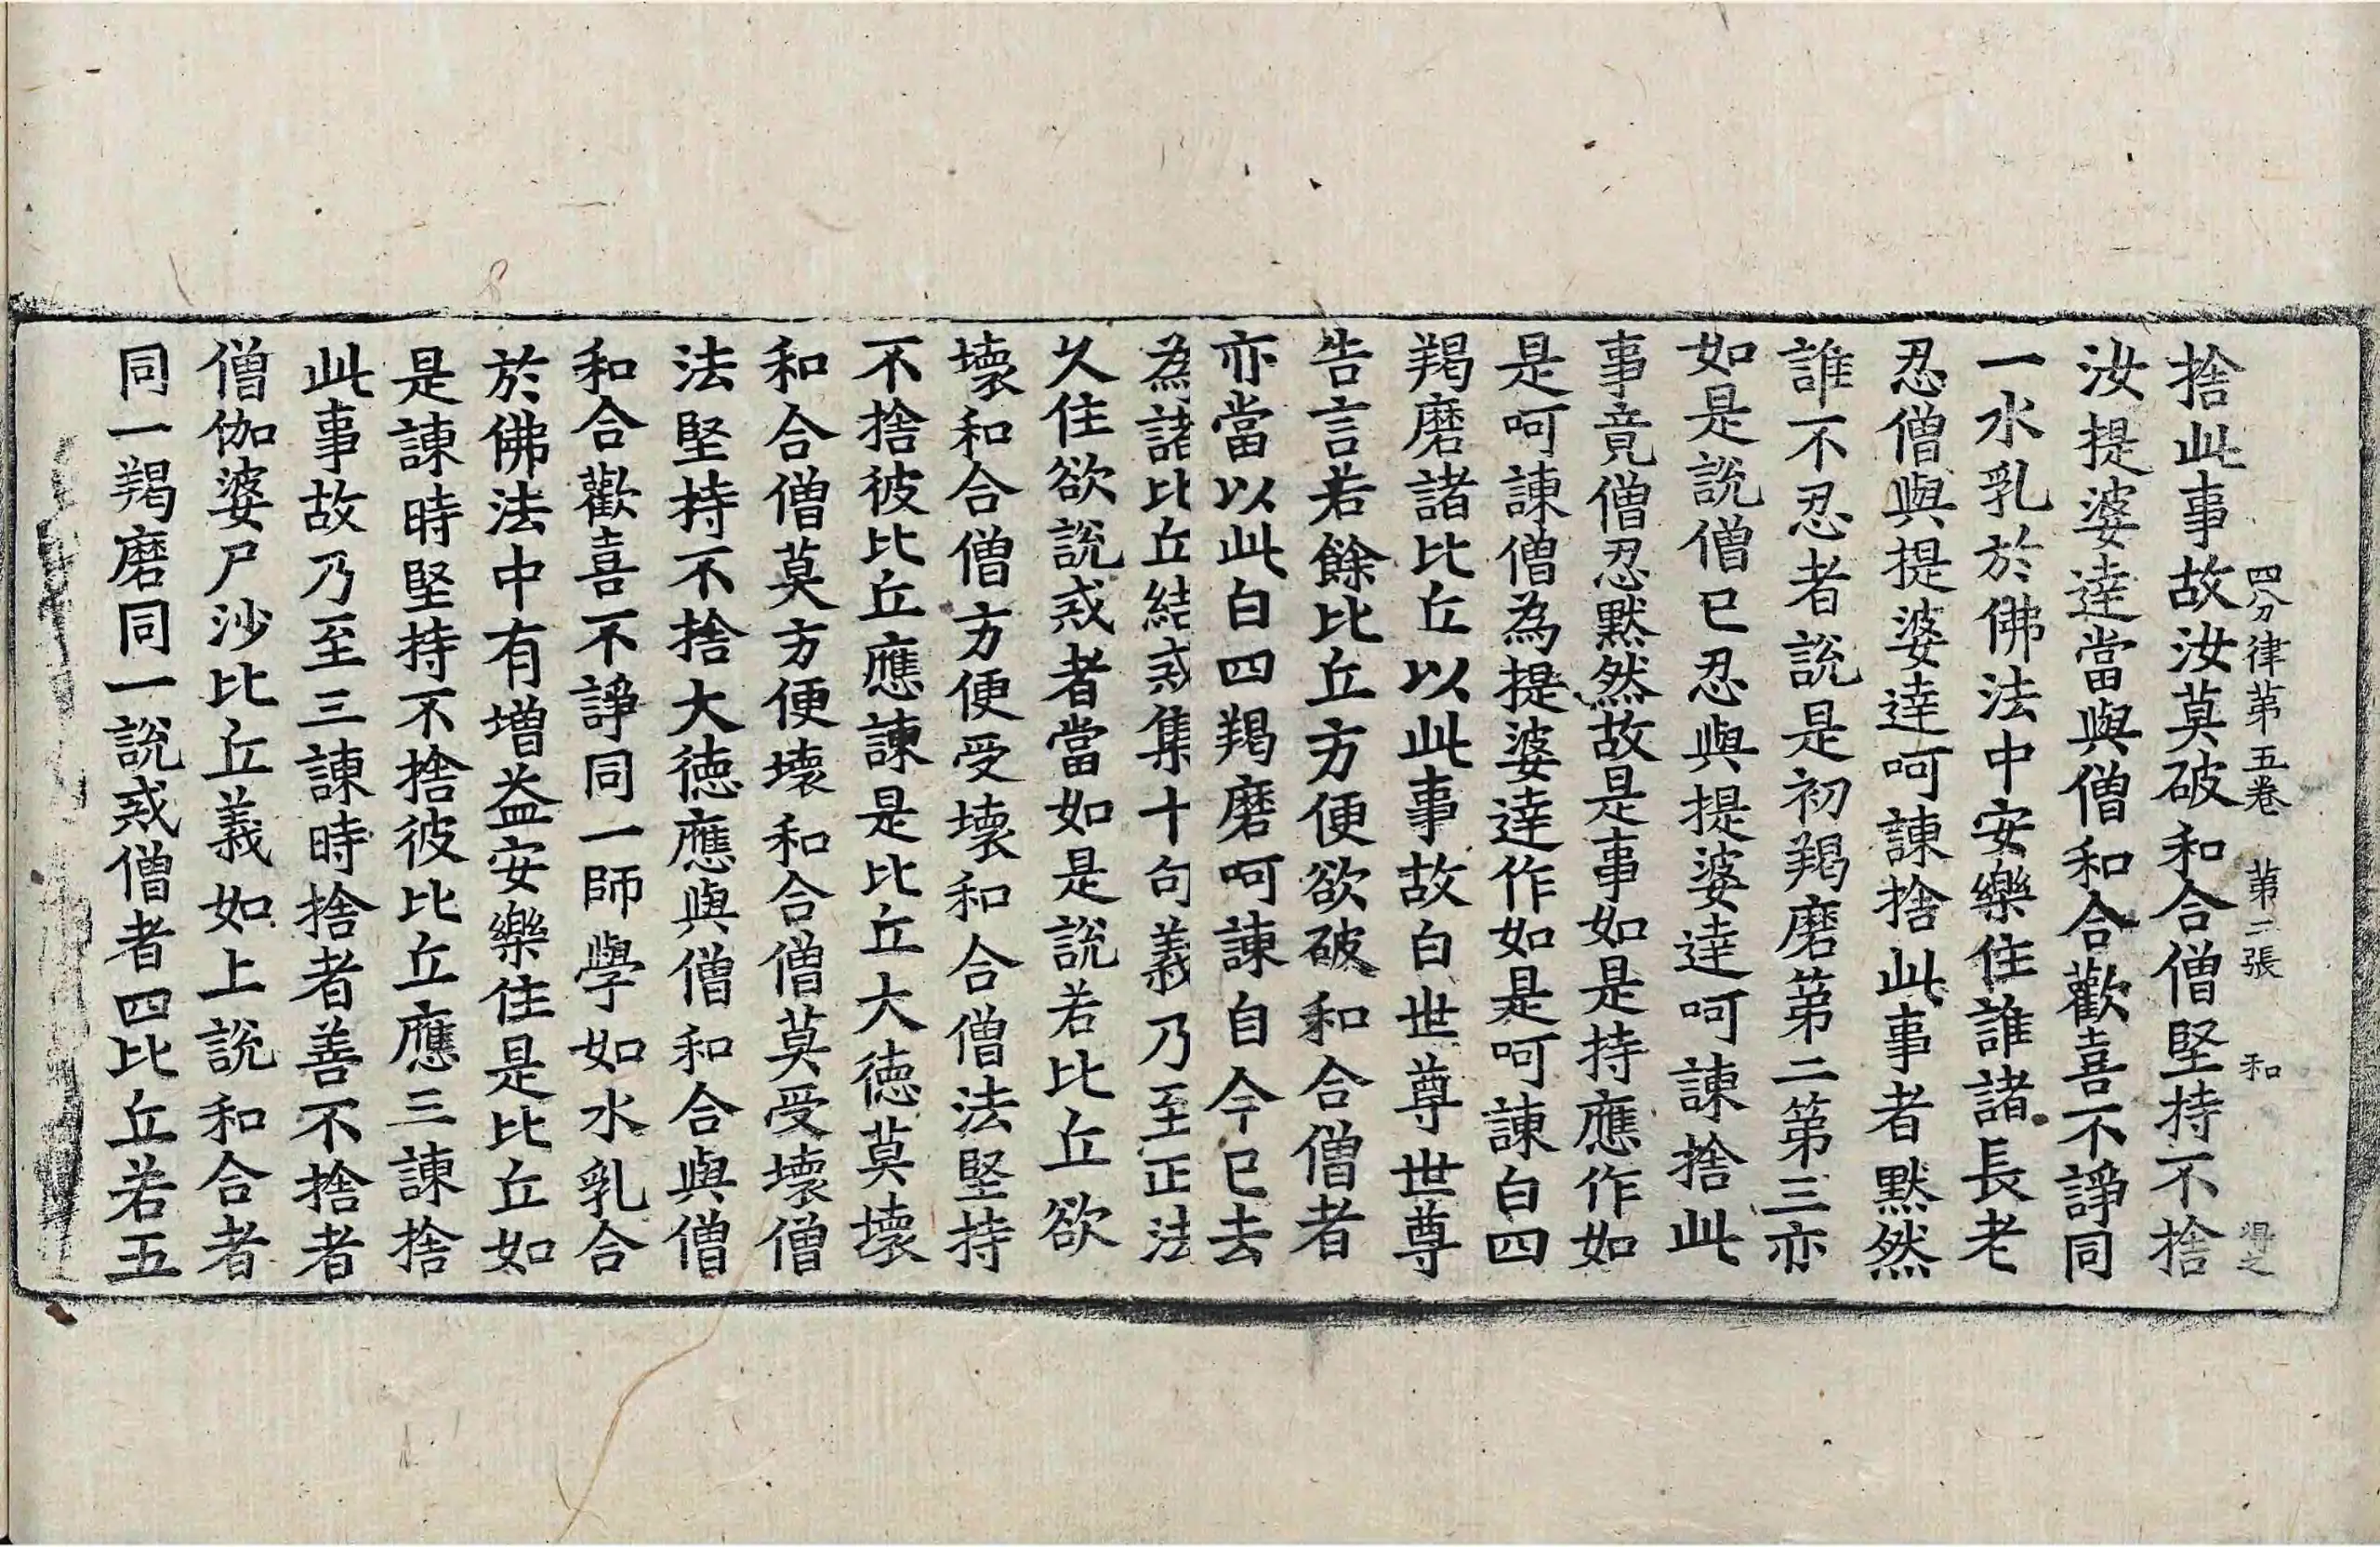 四分律第五卷 第二張 和
捨此事故汝莫破和合僧堅持不捨
汝提婆達當與僧和合歡喜不諍同
一水乳於佛法中安樂住誰諸長老
忍僧與提婆達呵諫捨此事者默然
誰不忍者說是初羯磨第二第三亦
如是說僧已忍與提婆達呵諫捨此
事竟僧忍默然故是事如是持應作如
是呵諫僧為提婆達作如是呵諫白四
羯磨諸比丘以此事故白世尊世尊
告言若餘比丘方便欲破和合僧者
亦當以此白四羯磨呵諫自今已去
為諸比丘結戒集十句義乃至正法
久住欲說戒者當如是說若比丘欲
壞和合僧方便受壞和合僧法堅持
不捨彼比丘應諫是比丘大德莫壞
和合僧莫方便壞和合僧莫受壞僧
法堅持不捨大德應與僧和合與僧
和合歡喜不諍同一師學如水乳合
於佛法中有增益安樂住是比丘如
是諫時堅持不捨彼比丘應三諫捨
此事故乃至三諫時捨者善不捨者
僧伽婆尸沙比丘義如上說和合者
同一羯磨同一說戒僧者四比丘若五